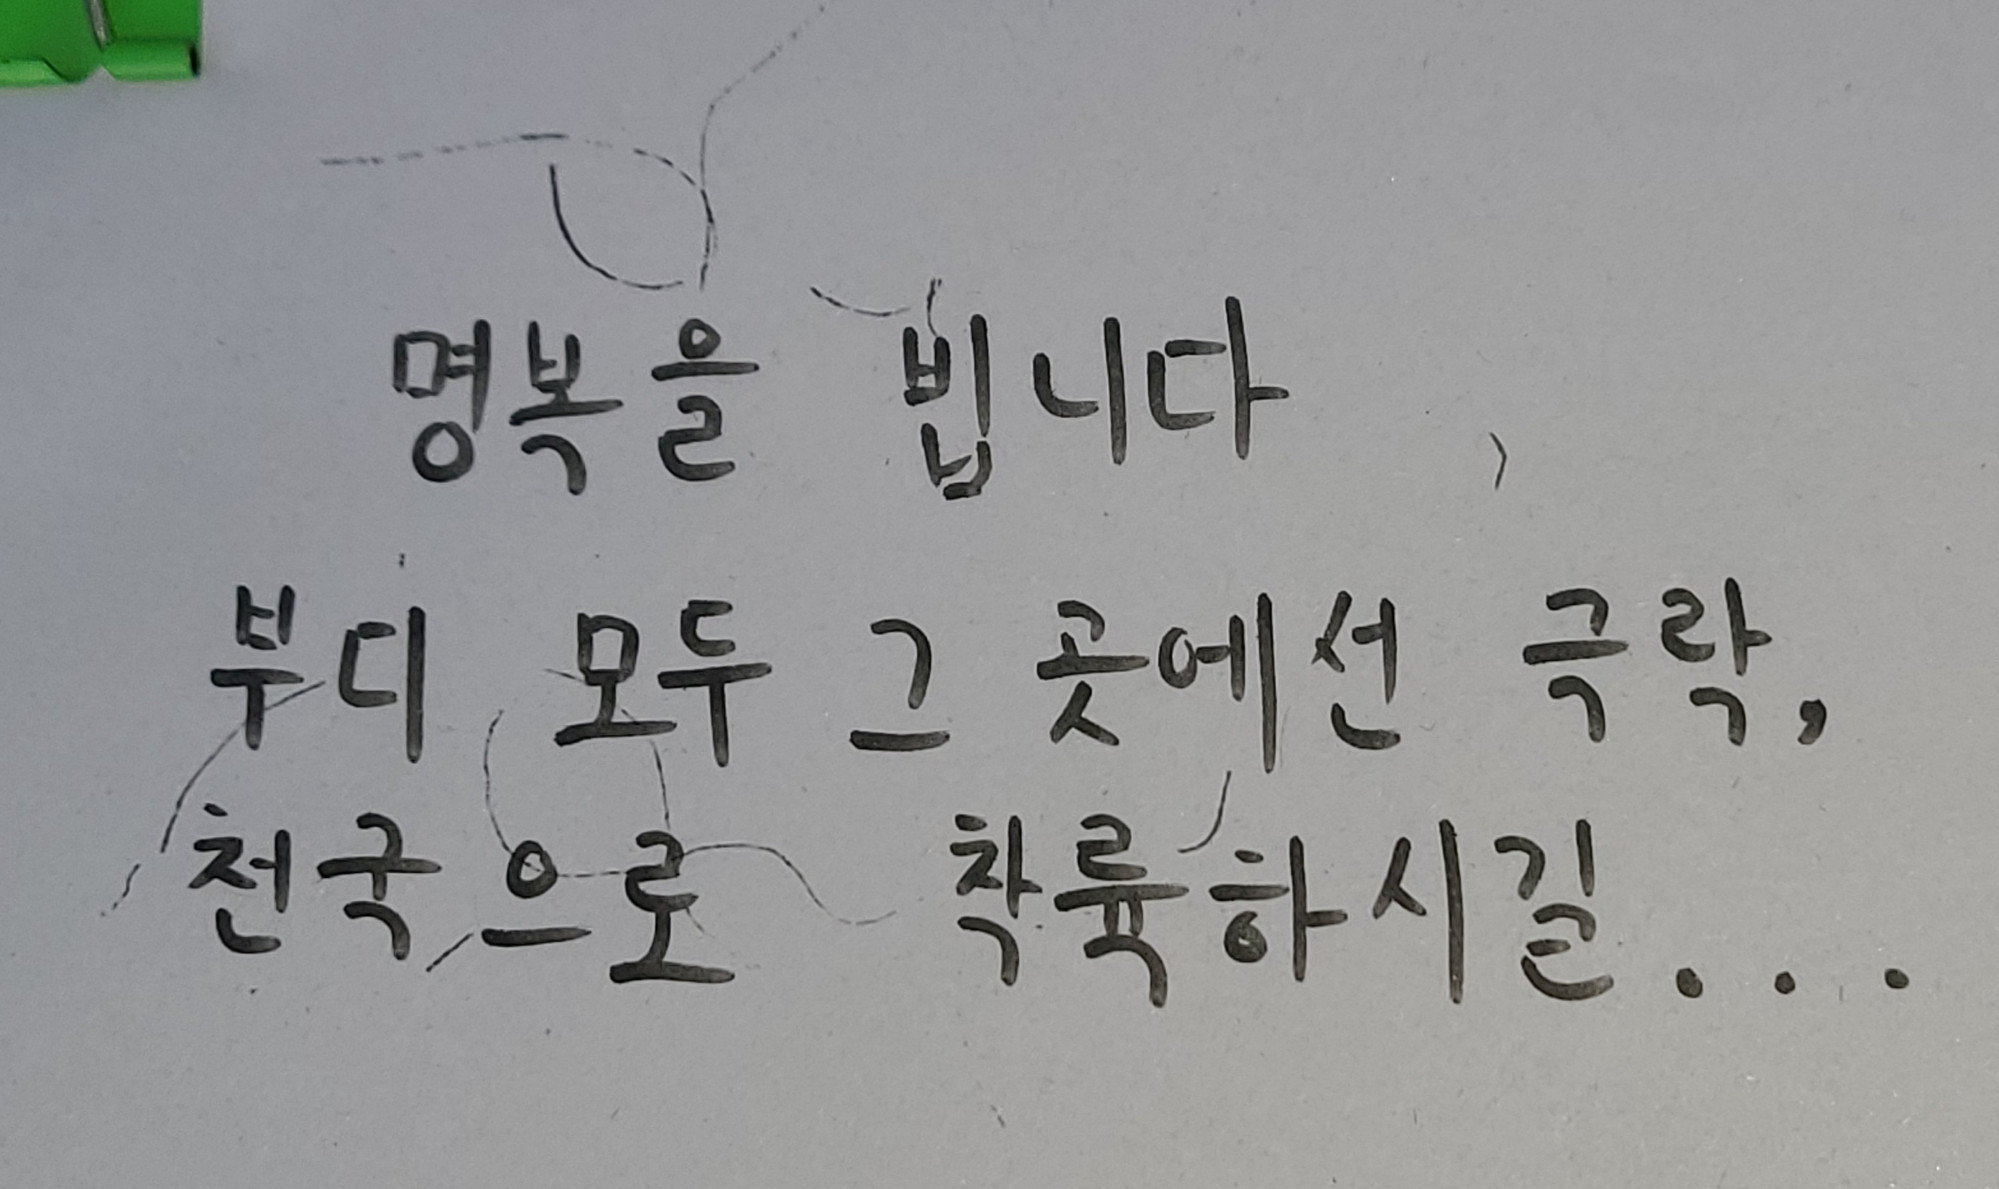 명복을 빕니다
부디 모두 그 곳에선 극락,
천국으로 착륙하시길...